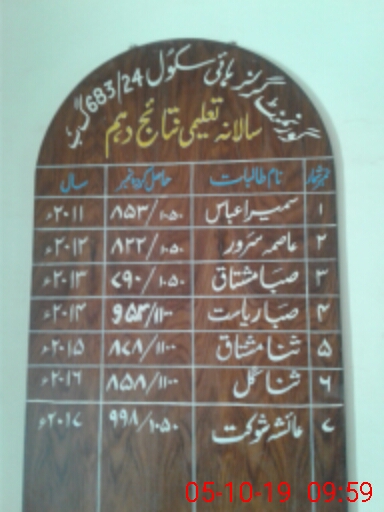 گورنمنٹ گرلز ہائی سکول 683/24 گ ب
سالانہ تعلیمی نتائج دہم
نمبر شمار نام طالبات حاصل کردہ نمبر سال
۱ سمیرا عباس ۸۵۳/۱۰۵۰ ۲۰۱۱ء
۲ عاصمہ سرور ۸۲۲/۱۰۵۰ ۲۰۱۲ء
۳ صبا مشتاق ۷۹۰/۱۰۵۰ ۲۰۱۳ء
۴ صبا ریاست ۹۵۳/۱۱۰۰ ۲۰۱۴ء
۵ ثنا مشتاق ۸۷۸/۱۱۰۰ ۲۰۱۵ء
۶ ثنا گل ۸۵۸/۱۱۰۰ ۲۰۱۶ء
۷ عائشہ شوکت ۹۹۸/۱۰۵۰ ۲۰۱۷ء
05-10-19 09:59